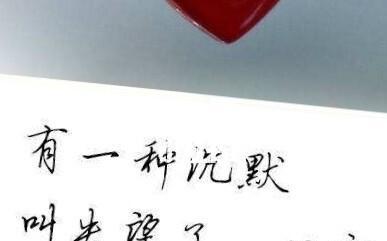 有一种沉默
叫失望了